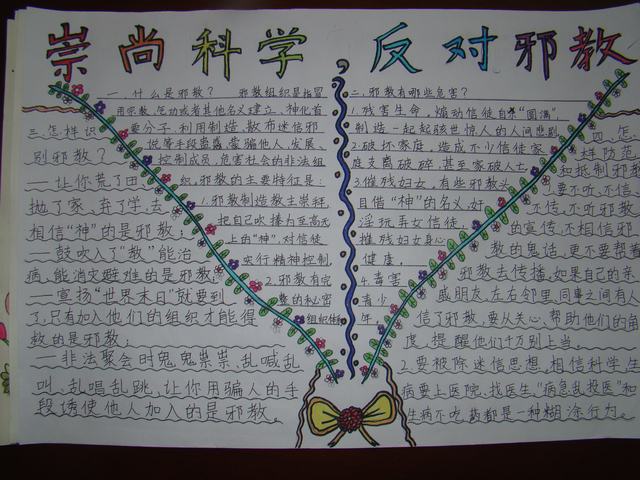 崇尚科学 反对邪教
一.什么是邪教? 邪教组织是指冒
用宗教、气功或者其他名义建立、神化首
要分子,利用制造、散布迷信邪
说等手段蛊惑、蒙骗他人,发展、
控制成员,危害社会的非法组
织,邪教的主要特征是:
1.邪教制造教主崇拜
把自己吹捧为至高无
上的“神”,对信徒
实行精神控制
2.邪教有完
整的秘密
组织体
二.邪教有哪些危害?
1.残害生命,煽动信徒自杀“圆满”
制造一起起骇世惊人的人间悲剧
2.破坏家庭,造成不少信徒家
庭支离破碎,甚至家破人亡
3.摧残妇女,有些邪教头
目借“神”的名义,奸
淫玩弄女信徒,
摧残妇女身心
健康,
4.毒害
青少
年.
三.怎样识
别邪教?
——让你荒了田
抛了家、弃了学,去
相信“神”的是邪教;
——鼓吹入了“教”能治
病,能消灾避难的是邪教;
——宣扬“世界末日”就要到
了,只有加入他们的组织才能得
救的是邪教;
——非法聚会时鬼鬼祟祟,乱喊乱
叫、乱唱乱跳、让你用骗人的手
段诱使他人加入的是邪教。
四.怎
样防范
和抵制邪教
要不听、不信
不传,不听邪教
的宣传,不相信邪
教的鬼话,更不要帮着
邪教去传播,如是自己的亲
戚朋友,左右邻里,同事之间有人
信了邪教,要从关心、帮助他们的角
度,提醒他们千万别上当。
2.要破除迷信思想,相信科学,生
病要上医院、找医生,“病急乱投医”和
生病不吃药都是一种糊涂行为。